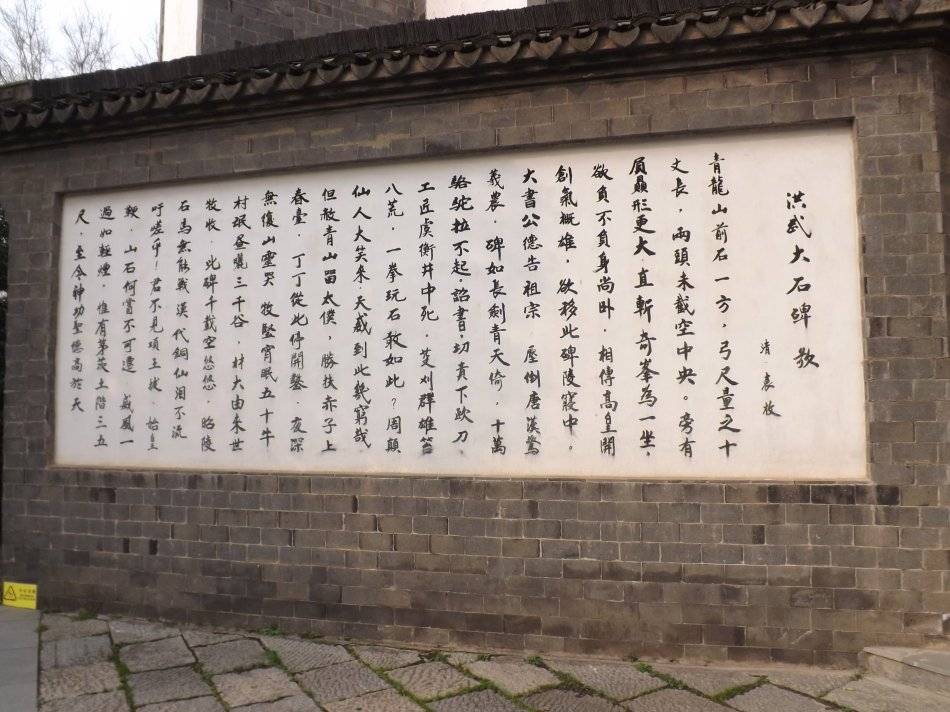 洪武大石碑歌
清·袁枚
青龍山前石一方，弓尺量之十
丈長，兩頭未截空中央。旁有
屓贔形更大，直斬奇峯為一坐，
欲負不負身尚卧，相傳高皇開
創氣概雄，欲移此碑陵寢中。
大書公德告祖宗 壓倒唐漢驚
羲農 碑如長劍青天倚，十萬
駱駝拉不起，詔書切責下歐刀，
工匠虞衡井中死，艾刈群雄笞
八荒，一拳玩石敢如此？周顛
仙人大笑來，天威到此幾窮哉
但赦青山留太僕，勝扶赤子上
春臺，丁丁從此停開鑿，夜深
無復山靈哭 牧豎宵眠五十牛
村氓晝曬三千谷，材大由來世
牧收，此碑千載空悠悠，昭陵
石馬無能戰漢代銅仙泪不流
吁嗟乎！君不見項王拔，始皇
鞭，山石何嘗不可遷，威風一
過如輕煙，惟有茅茨土階三五
尺，至今神功聖德高於天